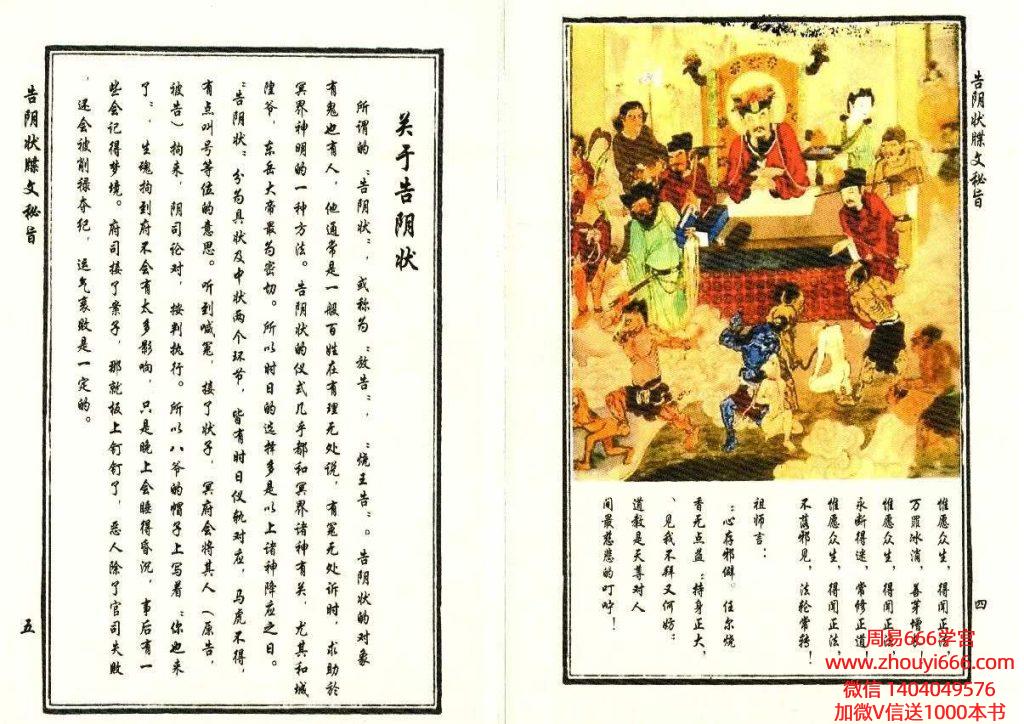 告阴状牒文秘旨
惟愿众生，得闻正法，
万罪冰消，善芽增长！
惟愿众生，得闻正法，
永断得迷，常修正道！
惟愿众生，得闻正法，
不落邪见，法轮常转！
祖师言：
：心存邪僻。任尔烧
香无点益；持身正大，
、见我不拜又何妨；
道教是天尊对人
间最慈悲的叮咛！
四
周易666学宫
www.zhouyi666.com
微信 1404049576
加微V信送1000本书
关于告阴状
所谓的“告阴状”，或称为“放告”，“烧王告”。告阴状的对象
有鬼也有人，他通常是一般百姓在有理无处说，有冤无处诉时，求助於
冥界神明的一种方法。告阴状的仪式几乎都和冥界诸神有关，尤其和城
隍爷，东岳大帝最为密切。所以时日的选择多是以上诸神降应之日。
“告阴状”分为具状及申状两个环节，皆有时日仪轨对应，马虎不得，
有点叫号等位的意思。听到喊冤，接了状子，冥府会将其人（原告，
被告）拘来，阴司论对，按判执行。所以八爷的帽子上写着“你也来
了”，生魂拘到府不会有太多影响，只是晚上会睡得昏沉，事后有一
些会记得梦境。府司接了案子，那就板上钉钉了，恶人除了官司失败
，还会被削禄夺纪，运气衰败是一定的。
告阴状牒文秘旨
五